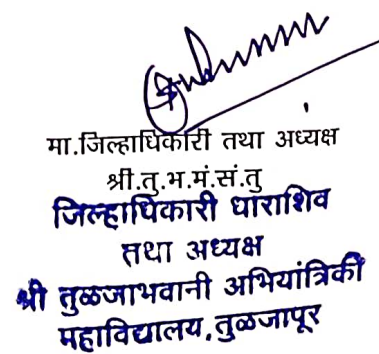 मा.जिल्हाधिकारी तथा अध्यक्ष
श्री.तु.भ.मं.सं.तु
जिल्हाधिकारी धाराशिव
तथा अध्यक्ष
श्री तुळजाभवानी अभियांत्रिकी
महाविद्यालय, तुळजापूर